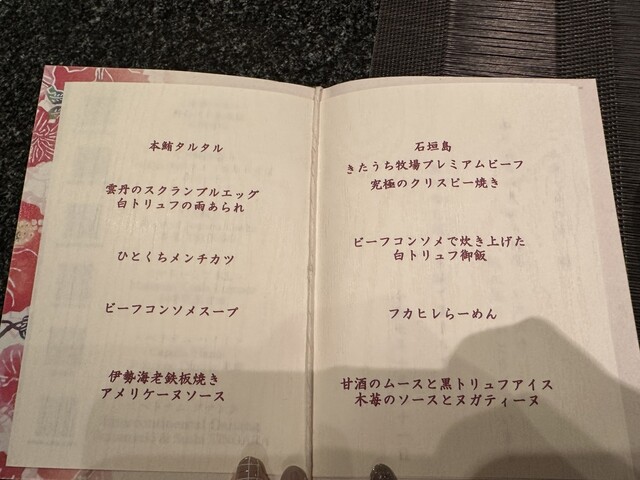 本鮪タルタル
雲丹のスクランブルエッグ
白トリュフの雨あられ
ひとくちメンチカツ
ビーフコンソメスープ
伊勢海老鉄板焼き
アメリケーヌソース
石垣島
きたうち牧場プレミアムビーフ
究極のクリスピー焼き
ビーフコンソメで炊き上げた
白トリュフ御飯
フカヒレらーめん
甘酒のムースと黒トリュフアイス
木苺のソースとヌガティーヌ